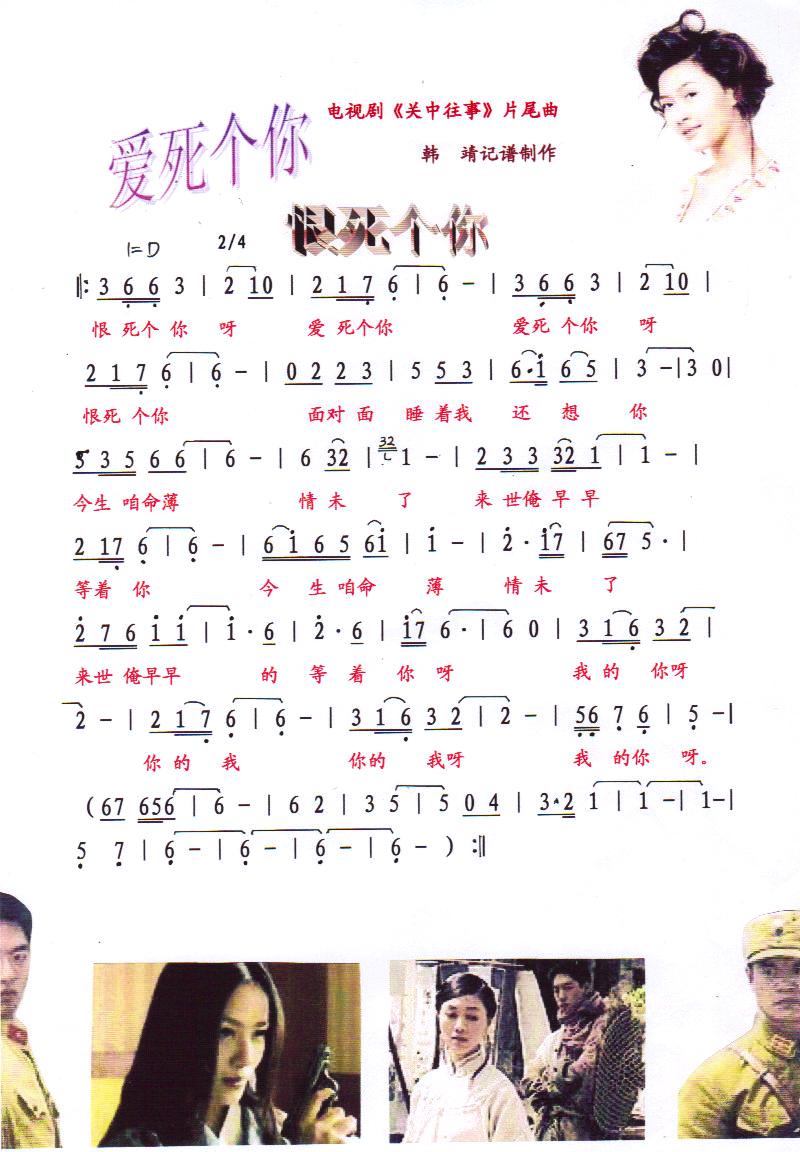 电视剧《关中往事》片尾曲
爱死个你
韩 靖记谱制作
恨死个你
1=D 2/4
‖: 3 6 6 3 | 2 10 | 2 1 7 6 | 6 - | 3 6 6 3 | 2 10 |
恨 死个 你 呀 爱 死个你 爱死 个你 呀
2 1 7 6 | 6 - | 0 2 2 3 | 5 5 3 | 6·1 6 5 | 3 -|3 0|
恨死 个你 面对 面 睡 着我 还 想 你
5 3 5 6 6 | 6 - | 6 32 | 32 1 - | 2 3 3 32 1 | 1 - |
今生 咱命薄 情 未 了 来 世俺 早 早
2 17 6 | 6 - | 6 1 6 5 61 | 1 - | 2· 17 | 67 5· |
等着 你 今 生 咱命 薄 情 未 了
2 7 6 1 1 | 1· 6 | 2· 6 | 17 6· | 6 0 | 3 1 6 3 2 |
来世 俺早早 的 等 着 你 呀 我 的 你呀
2 - | 2 1 7 6 | 6 - | 3 1 6 3 2 | 2 - | 56 7 6 | 5 -|
你 的 我 你的 我呀 我 的你 呀。
( 67 656 | 6 - | 6 2 | 3 5 | 5 0 4 | 3·2 1 | 1 -| 1-|
5 7 | 6 - | 6 - | 6 - | 6 - ) :‖